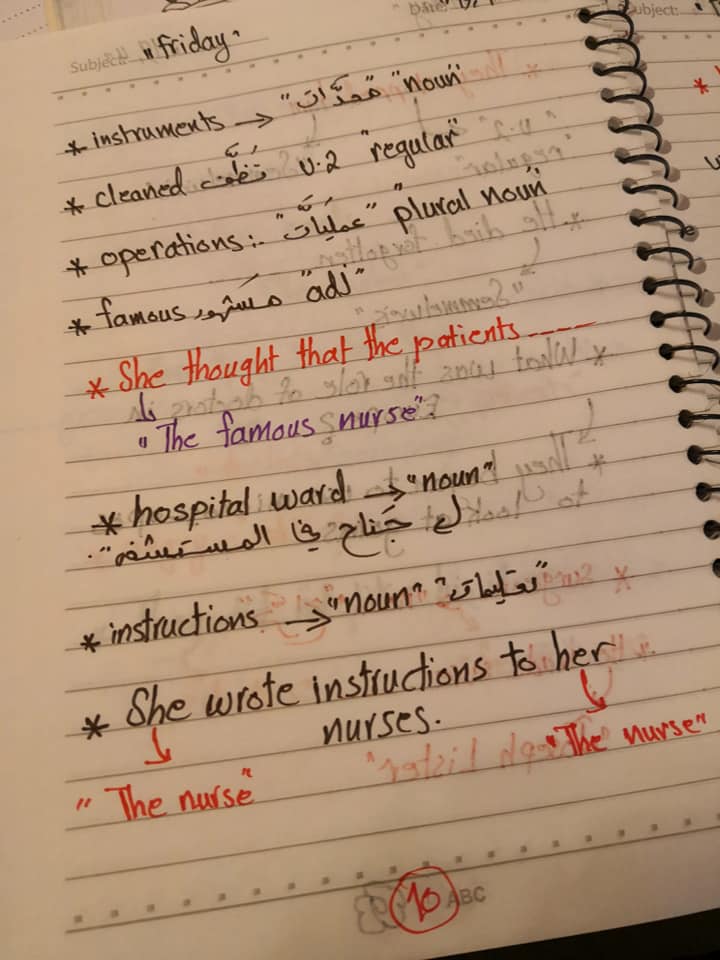 Subject: "Friday"
* instruments → "مُعدَّات" "noun"
* cleaned نُظِّفت v.2 "regular"
* operations:. "عمليَّات" "plural noun"
* famous مشهور "adj"
* She thought that the patients ----
"The famous nurse".
* hospital ward → "noun"
جَناح في المستشفى".
* instructions → "noun" "تعليمات"
* She wrote instructions to her
nurses.
"The nurse"
"The nurse"
10 ABC